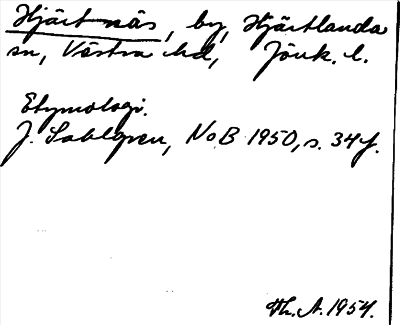 Hjärtnäs, by, Hjärtlanda
sn, Västra hd, Jönk. l.
Etymologi.
J. Sahlgren, NoB 1950, s. 34f.
Th. A. 1954.